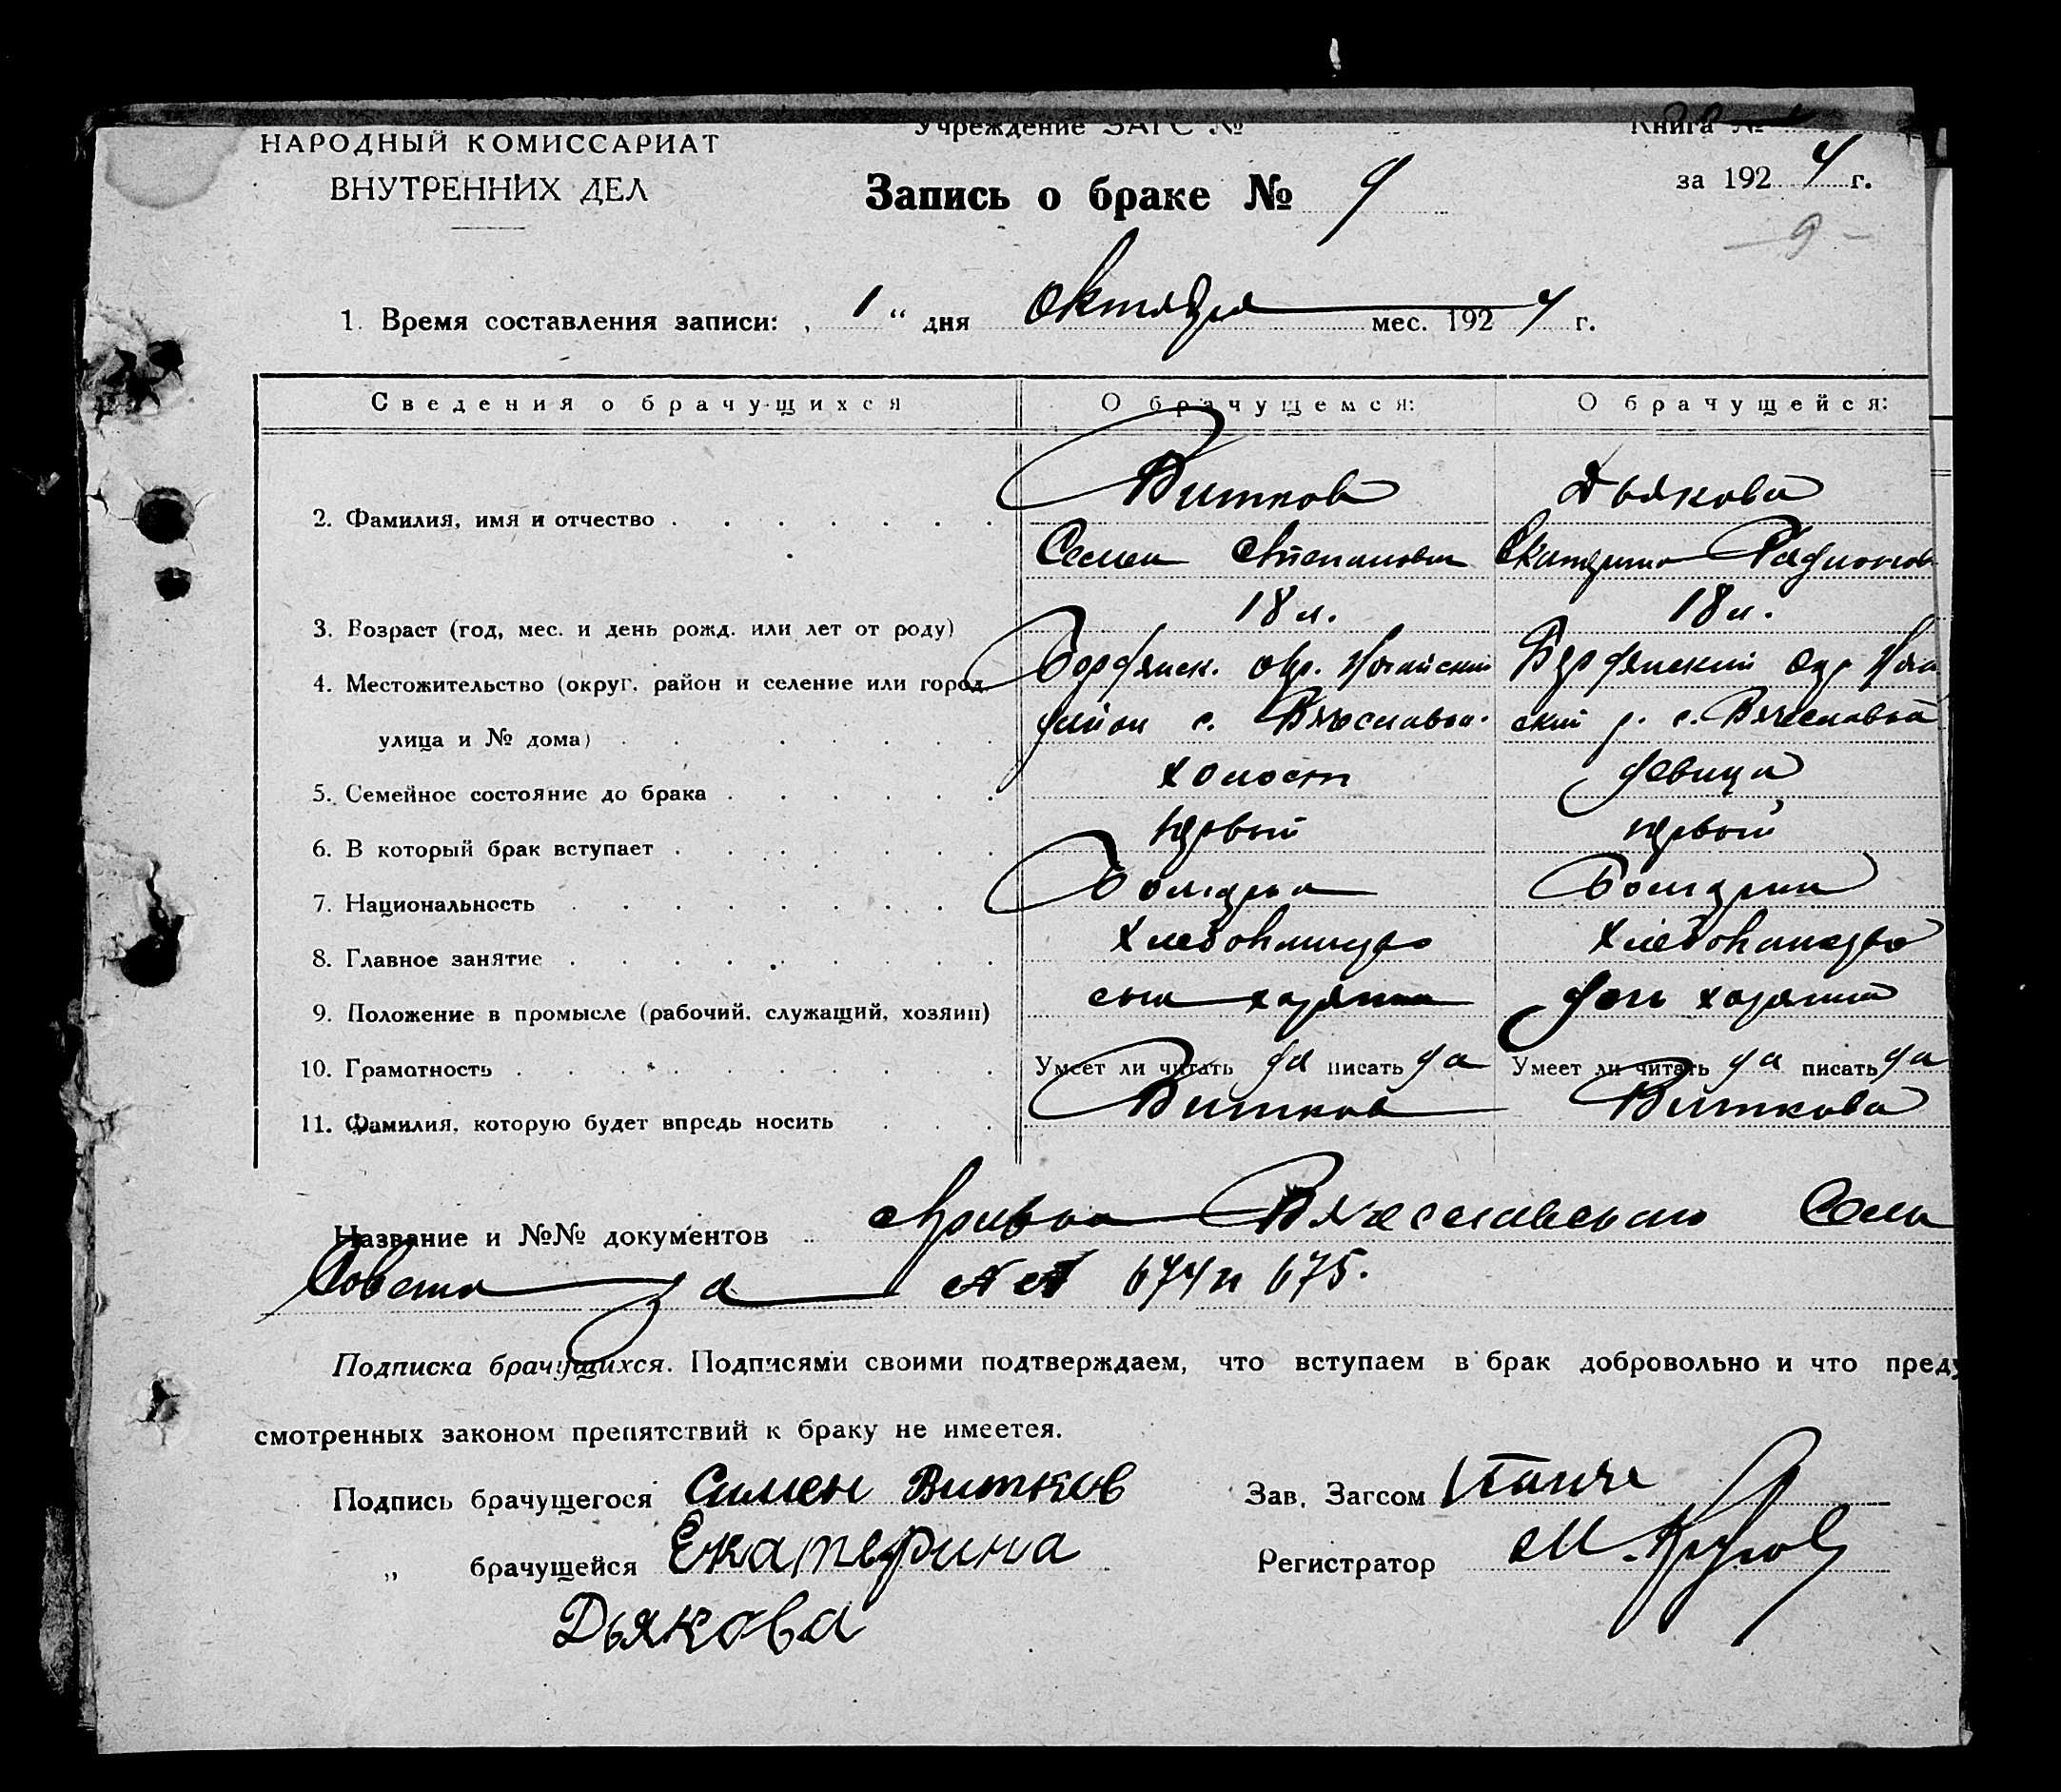 НАРОДНЫЙ КОМИССАРИАТ
ВНУТРЕННИХ ДЕЛ
Учреждение ЗАГС №
Книга №
за 1924 г.
Запись о браке № 9
- 9 -
1. Время составления записи: 1 “ дня Октября мес. 1924 г.
Сведения о брачущихся О брачущемся: О брачущейся:
2. Фамилия, имя и отчество Витков Дьякова
Семен Степанович Екатерина Радионов
3. Возраст (год, мес. и день рожд. или лет от роду) 18 л. 18 л.
4. Местожительство (округ, район и селение или город, Бердянск. окр. Ногайский Бердянский окр Ногай
улица и № дома) район с. Вячеславка. ский р. с. Вячеславка
5. Семейное состояние до брака холост девица
6. В который брак вступает первый первый
7. Национальность Болгарин Болгарин
8. Главное занятие Хлебопашество Хлебопашество
9. Положение в промысле (рабочий, служащий, хозяин) сын хозяина дочь хозяина
10. Грамотность Умеет ли читать да писать да Умеет ли читать да писать да
11. Фамилия, которую будет впредь носить Витков Виткова
Название и №№ документов Вячеславского Сель
Совета за №№ 674 и 675.
Подписка брачущихся. Подписями своими подтверждаем, что вступаем в брак добровольно и что преду
смотренных законом препятствий к браку не имеется.
Подпись брачущегося Симен Витков Зав. Загсом
„ брачущейся Екатерина Регистратор
Дьякова